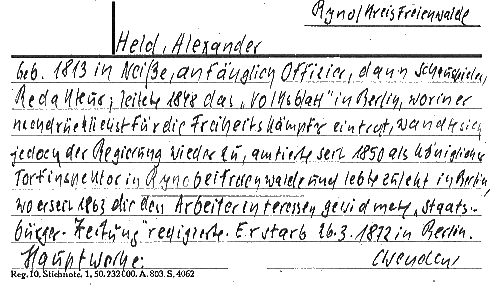 Ryno/Kreis Freienwalde
Held, Alexander
geb. 1813 in Neiße, anfänglich Offizier, dann Schauspieler,
Redakteur, leitete 1848 das „Volksblatt" in Berlin, worin er
nachdrücklichst für die Freiheitskämpfer eintrat, wandte sich
jedoch der Regierung wieder zu, amtierte seit 1850 als königlicher
Torfinspektor in Ryno bei Freienwalde und lebte zuletzt in Berlin,
wo er seit 1863 die den Arbeiterinteressen gewidmete „Staats-
bürger-Zeitung" redigierte. Er starb 26.3.1872 in Berlin.
Hauptwerke:
Reg. 10, Stichnote. 1, 50. 232 000. A. 803. S. 4062